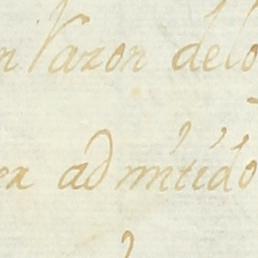 n razon delo
ea admitido